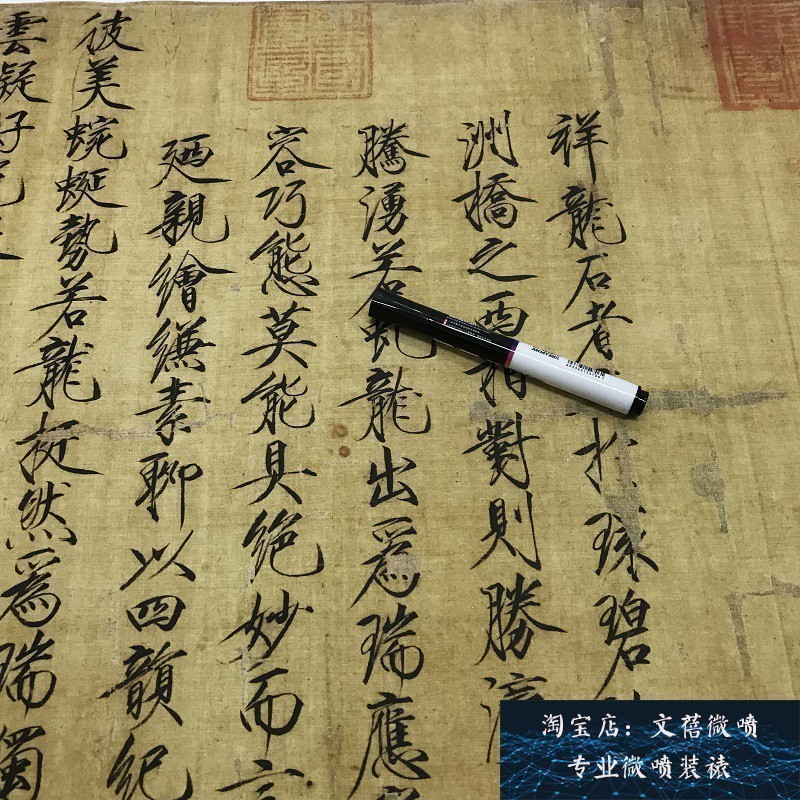 祥龍石者於環碧
洲橋之西相對則勝瀛
騰湧若虬龍出爲瑞應
容巧態莫能具絕妙而言
廼親繪縑素聊以四韻紀
彼美蜿蜒勢若龍挺然爲瑞獨
雲凝好色
淘宝店：文蓓微喷
专业微喷装裱